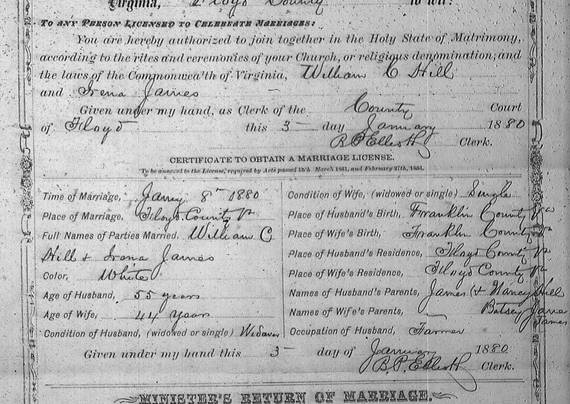 Virginia, Floyd County to wit:
TO ANY PERSON LICENSED TO CELEBRATE MARRIAGES:
You are hereby authorized to join together in the Holy State of Matrimony,
according to the rites and ceremonies of your Church, or religious denomination, and
the laws of the Commonwealth of Virginia, William C Hill
and Irena James
Given under my hand, as Clerk of the County Court
of Floyd this 3 day January 1880
Clerk.
CERTIFICATE TO OBTAIN A MARRIAGE LICENSE.
To be annexed to the License, required by Acts passed 15th March 1861, and February 27th, 1866.
Time of Marriage, Jany 8th 1880
Place of Marriage, Floyd County Va
Full Names of Parties Married, William C
Hill & Irena James
Color, White
Age of Husband, 55 years
Age of Wife, 44 years
Condition of Husband, (widowed or single)
Condition of Wife, (widowed or single) Single
Place of Husband's Birth, Franklin County Va
Place of Wife's Birth, Franklin County Va
Place of Husband's Residence, Floyd County Va
Place of Wife's Residence, Floyd County Va
Names of Husband's Parents, James & Nancy Hill
Names of Wife's Parents, Betsey James
Occupation of Husband, Farmer
Given under my hand this 3 day of January 1880
Clerk.
MINISTER'S RETURN OF MARRIAGE.